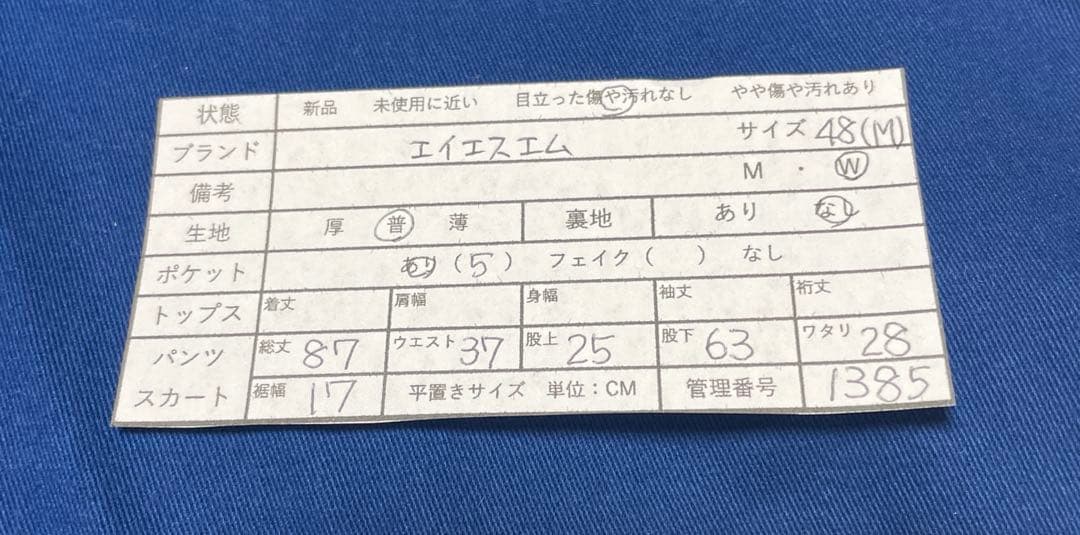 状態 新品 未使用に近い 目立った傷や汚れなし やや傷や汚れあり
ブランド エイエスエム サイズ 48(M)
備考 M ・ W
生地 厚 普 薄 裏地 あり なし
ポケット あり (5) フェイク( ) なし
トップス 着丈 肩幅 身幅 袖丈 裄丈
パンツ 総丈 87 ウエスト 37 股上 25 股下 63 ワタリ 28
スカート 裾幅 17 平置きサイズ 単位:CM 管理番号 1385